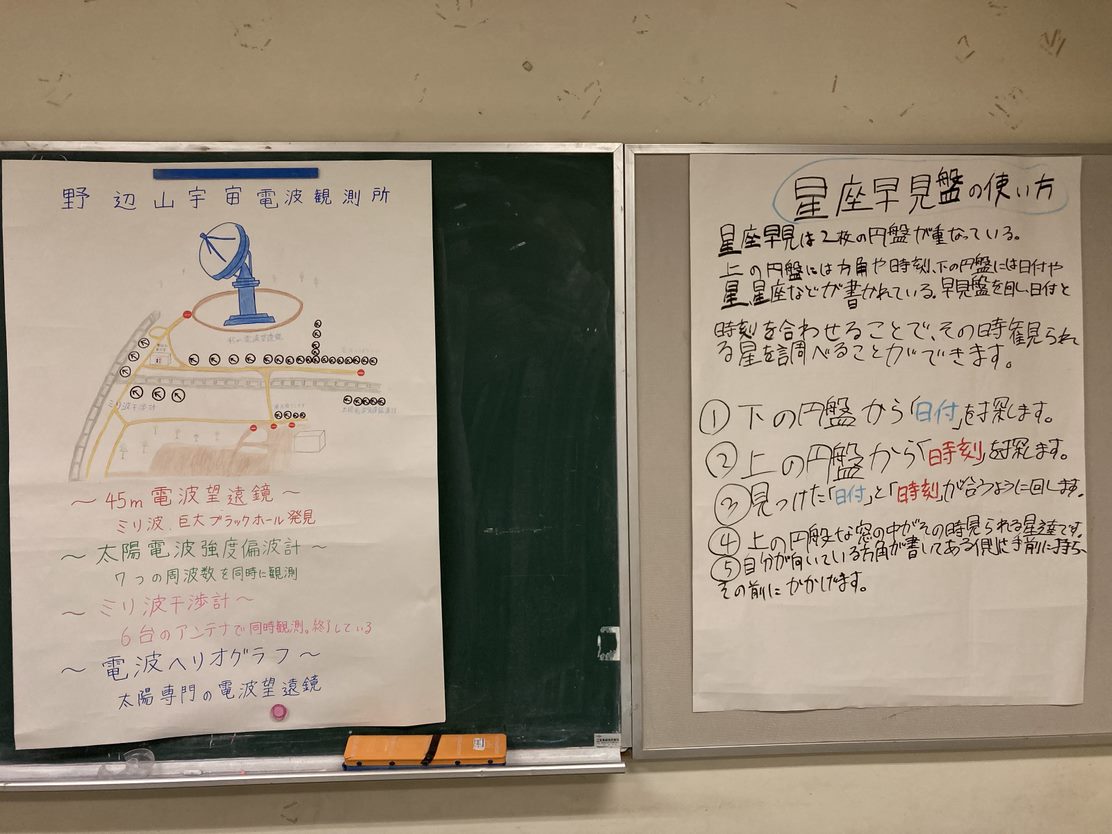 野辺山宇宙電波観測所
45m電波望遠鏡
ミリ波干渉計
～45m電波望遠鏡～
ミリ波、巨大ブラックホール発見
～太陽電波強度偏波計～
7つの周波数を同時に観測
～ミリ波干渉計～
6台のアンテナで同時観測。終了している
～電波ヘリオグラフ～
太陽専門の電波望遠鏡
星座早見盤の使い方
星座早見は2枚の円盤が重なっている。
上の円盤には方角や時刻、下の円盤には日付や
星、星座などが書かれている。早見盤を回し、日付と
時刻を合わせることで、その時見られ
る星を調べることができます。
①下の円盤から「日付」を探します。
②上の円盤から「時刻」を探します。
③見つけた「日付」と「時刻」が合うように回します。
④上の円盤な窓の中がその時見られる星達です。
⑤自分が向いている方角が書いてある側を手前に持ち、
その前にかかげます。